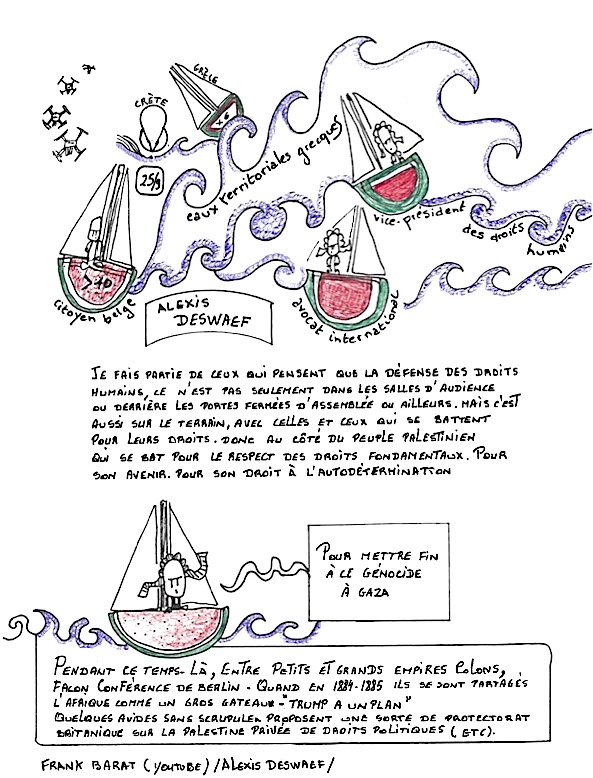 GRÈCE
x6
CRÈTE
25/9
eaux territoriales grecques
vice-président
des droits
humains
>40
citoyen belge
ALEXIS
DESWAEF
avocat international
JE FAIS PARTIE DE CEUX QUI PENSENT QUE LA DÉFENSE DES DROITS
HUMAINS, CE N'EST PAS SEULEMENT DANS LES SALLES D'AUDIENCE
OU DERRIÈRE LES PORTES FERMÉES D'ASSEMBLÉE OU AILLEURS. MAIS C'EST
AUSSI SUR LE TERRAIN, AVEC CELLES ET CEUX QUI SE BATTENT
POUR LEURS DROITS. DONC AU CÔTÉ DU PEUPLE PALESTINIEN
QUI SE BAT POUR LE RESPECT DES DROITS FONDAMENTAUX. POUR
SON AVENIR. POUR SON DROIT À L'AUTODÉTERMINATION
POUR METTRE FIN
À CE GÉNOCIDE
À GAZA
PENDANT CE TEMPS-LÀ, ENTRE PETITS ET GRANDS EMPIRES COLONS,
FAÇON CONFÉRENCE DE BERLIN - QUAND EN 1884-1885 ILS SE SONT PARTAGÉS
L'AFRIQUE COMME UN GROS GATEAUX - "TRUMP A UN PLAN"
QUELQUES AVIDES SANS SCRUPULES PROPOSENT UNE SORTE DE PROTECTORAT
BRITANIQUE SUR LA PALESTINE PRIVÉE DE DROITS POLITIQUES (ETC).
FRANK BARAT (YOUTUBE) / ALEXIS DESWAEF /